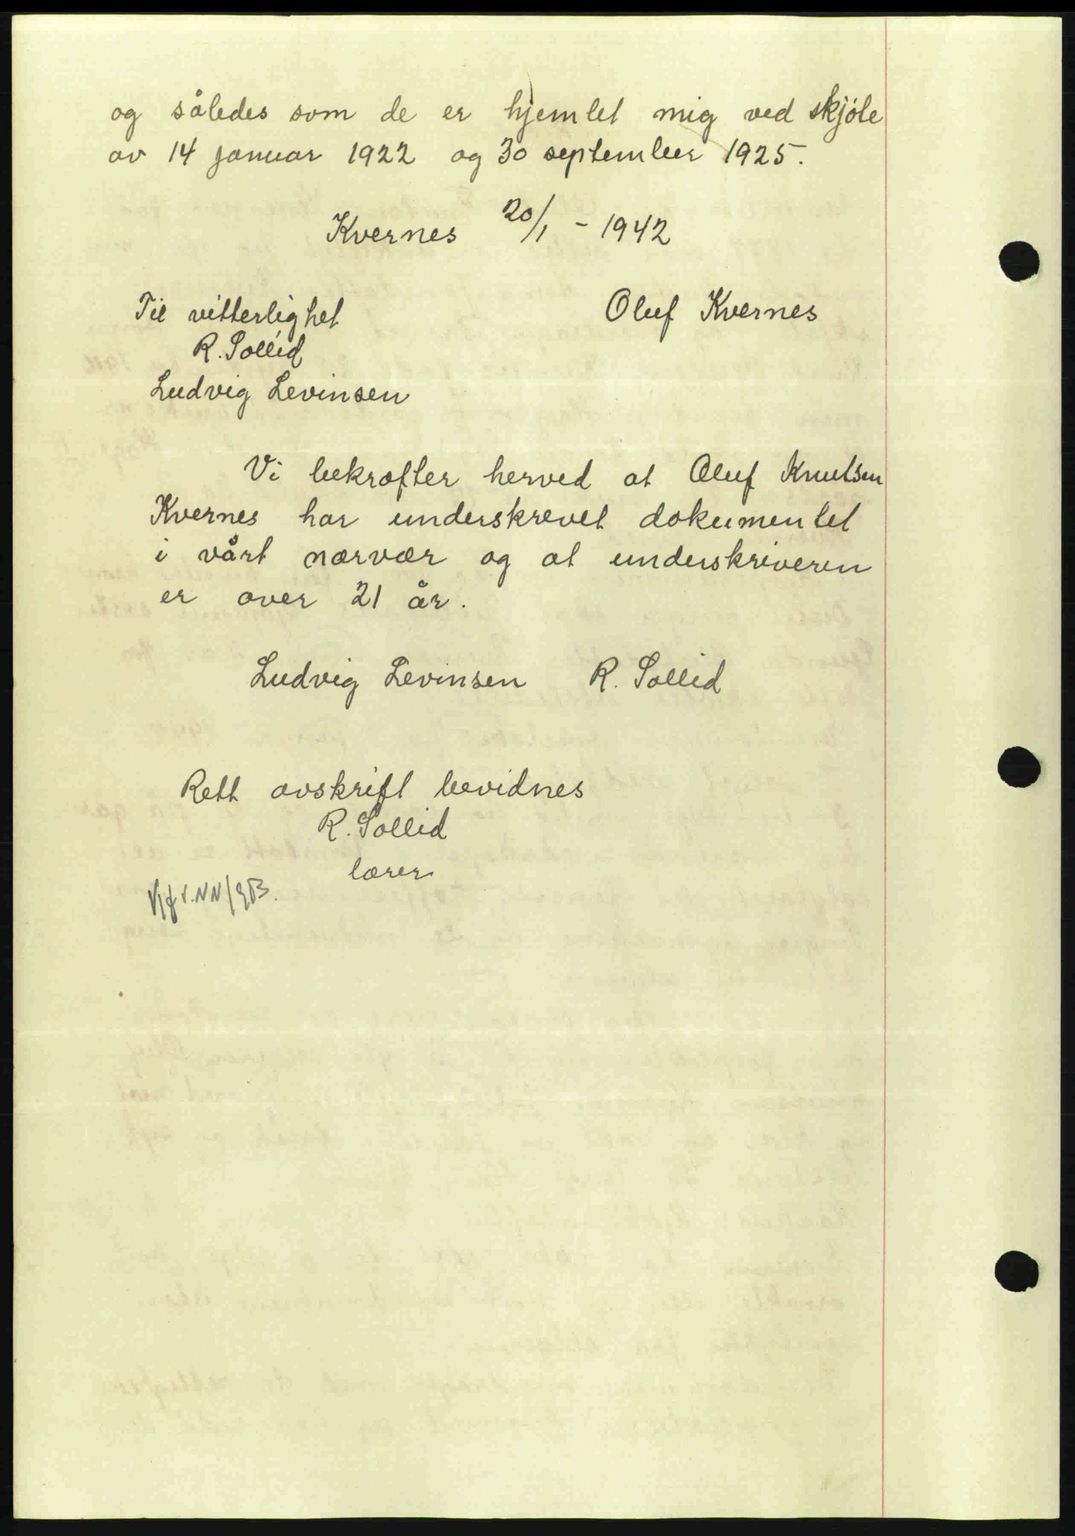 og således som de er hjemlet mig ved skjøte
av 14 januar 1922 og 30 september 1925.
Kvernes 20/1 - 1942
Til vitterlighet
Oluf Kvernes
R. Sollid
Ludvig Levinsen
Vi bekræfter herved at Oluf Knutsen
Kvernes har underskrevet dokumentet
i vårt nærvær og at underskriveren
er over 21 år.
Ludvig Levinsen R. Sollid
Rett avskrift bevidnes
R. Sollid
lærer